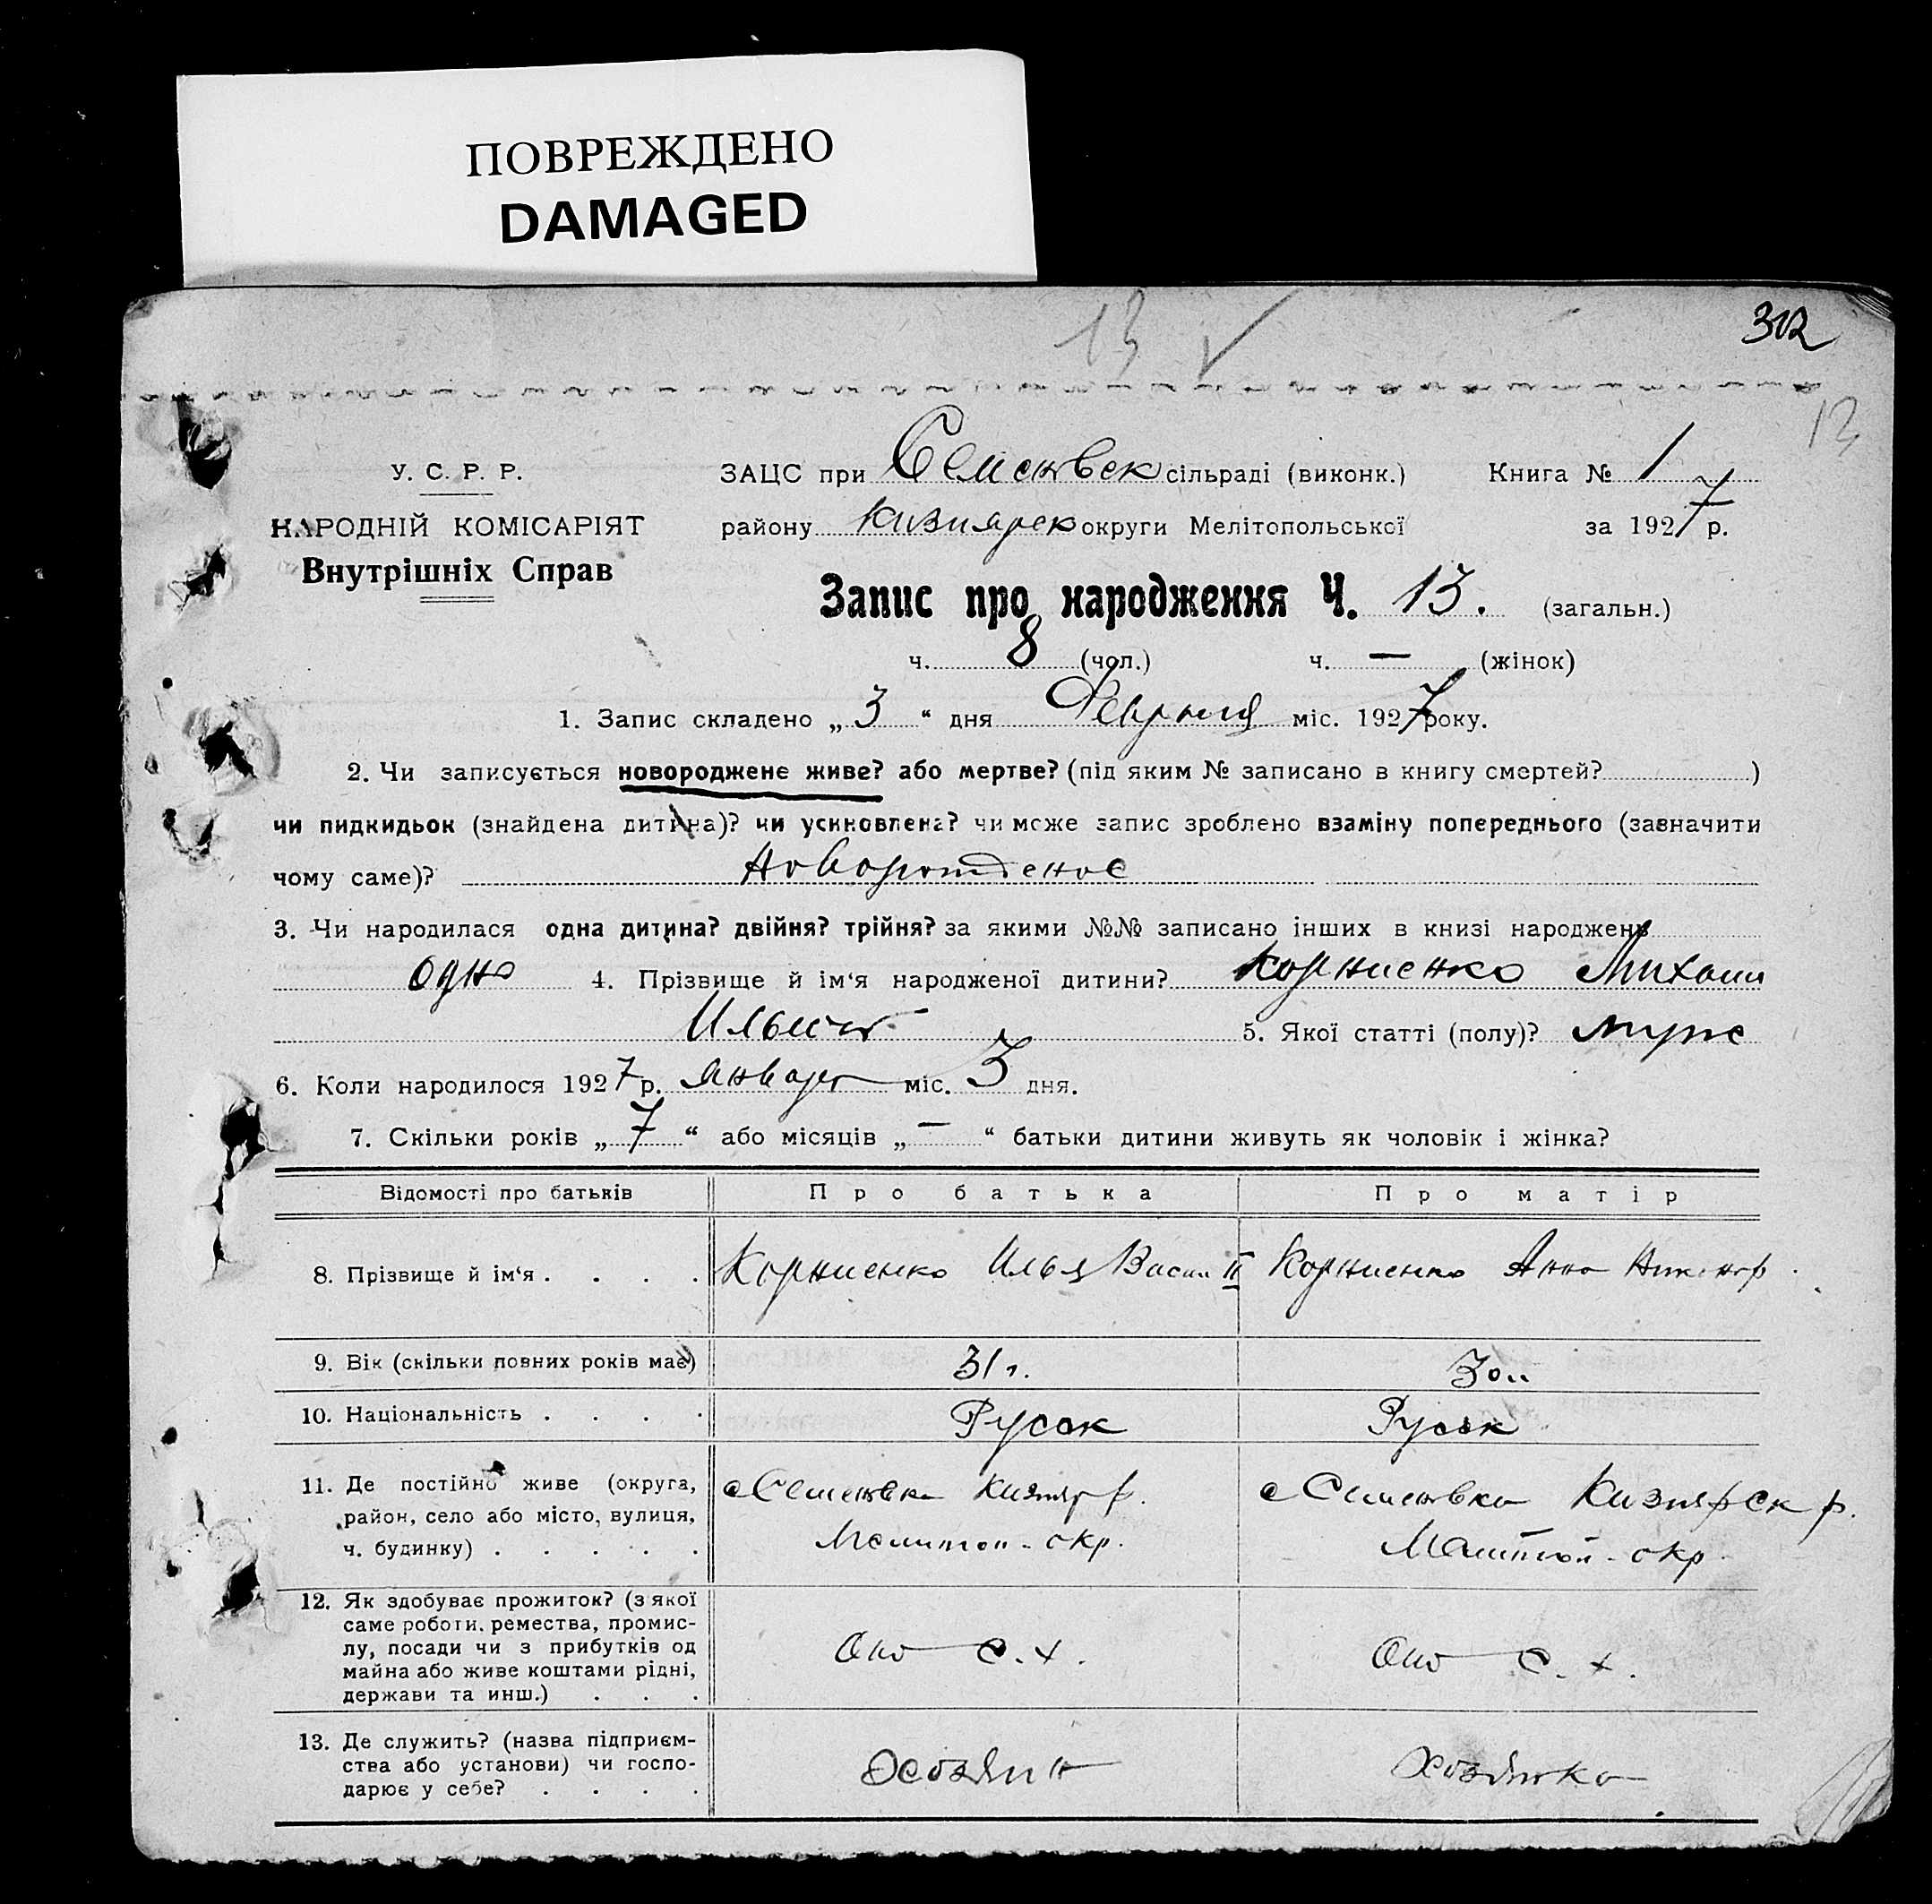 ПОВРЕЖДЕНО
DAMAGED
13
312
13
У. С. Р. Р.
НАРОДНІЙ КОМІСАРІЯТ
Внутрішніх Справ
ЗАЦС при Семеновск сільраді (виконк.) Книга № 1
району Кизиярск округи Мелітопольської за 1927 р.
Запис про народження Ч. 13. (загальн.)
ч. 8 (чол.) ч. — (жінок)
1. Запис складено „ 3 “ дня Февраля міс. 1927 року.
2. Чи записується новороджене живе? або мертве? (під яким № записано в книгу смертей? )
чи пидкидьок (знайдена дитина)? чи усиновлена? чи може запис зроблено взаміну попереднього (зазначити
чому саме)? Новорожденое
3. Чи народилася одна дитина? двійня? трійня? за якими №№ записано інших в книзі народжень
одно 4. Прізвище й ім‘я народженої дитини? Корниенко Михаил
Ильич 5. Якої статті (полу)? муже
6. Коли народилося 1927 р. Январь міс. 3 дня.
7. Скільки років „ 7 “ або місяців „ — “ батьки дитини живуть як чоловік і жінка?
Відомості про батьків Про батька Про матір
8. Прізвище й ім‘я . . . . Корниенко Илья Васил II Корниенко Анна Никонор
9. Вік (скільки повних років має) 31 г. 30
10. Національність . . . . Русск Русск
11. Де постійно живе (округа,
район, село або місто, вулиця,
ч. будинку) . . . . .
с Семеновка Кизияр р.
Мелитоп. окр.
с Семеновка Кизиярск р.
Мелитоп. окр
12. Як здобуває прожиток? (з якої
саме роботи, ремества, промис-
лу, посади чи з прибутків од
майна або живе коштами рідні,
держави та инш.) . . .
С. х.
С. х.
13. Де служить? (назва підприєм-
ства або установи) чи госпо-
дарює у себе? . . . .
Хозяин
Хозяйка